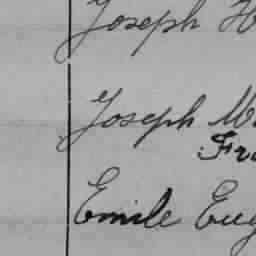 Joseph H
Joseph
Fra
Emile Eug